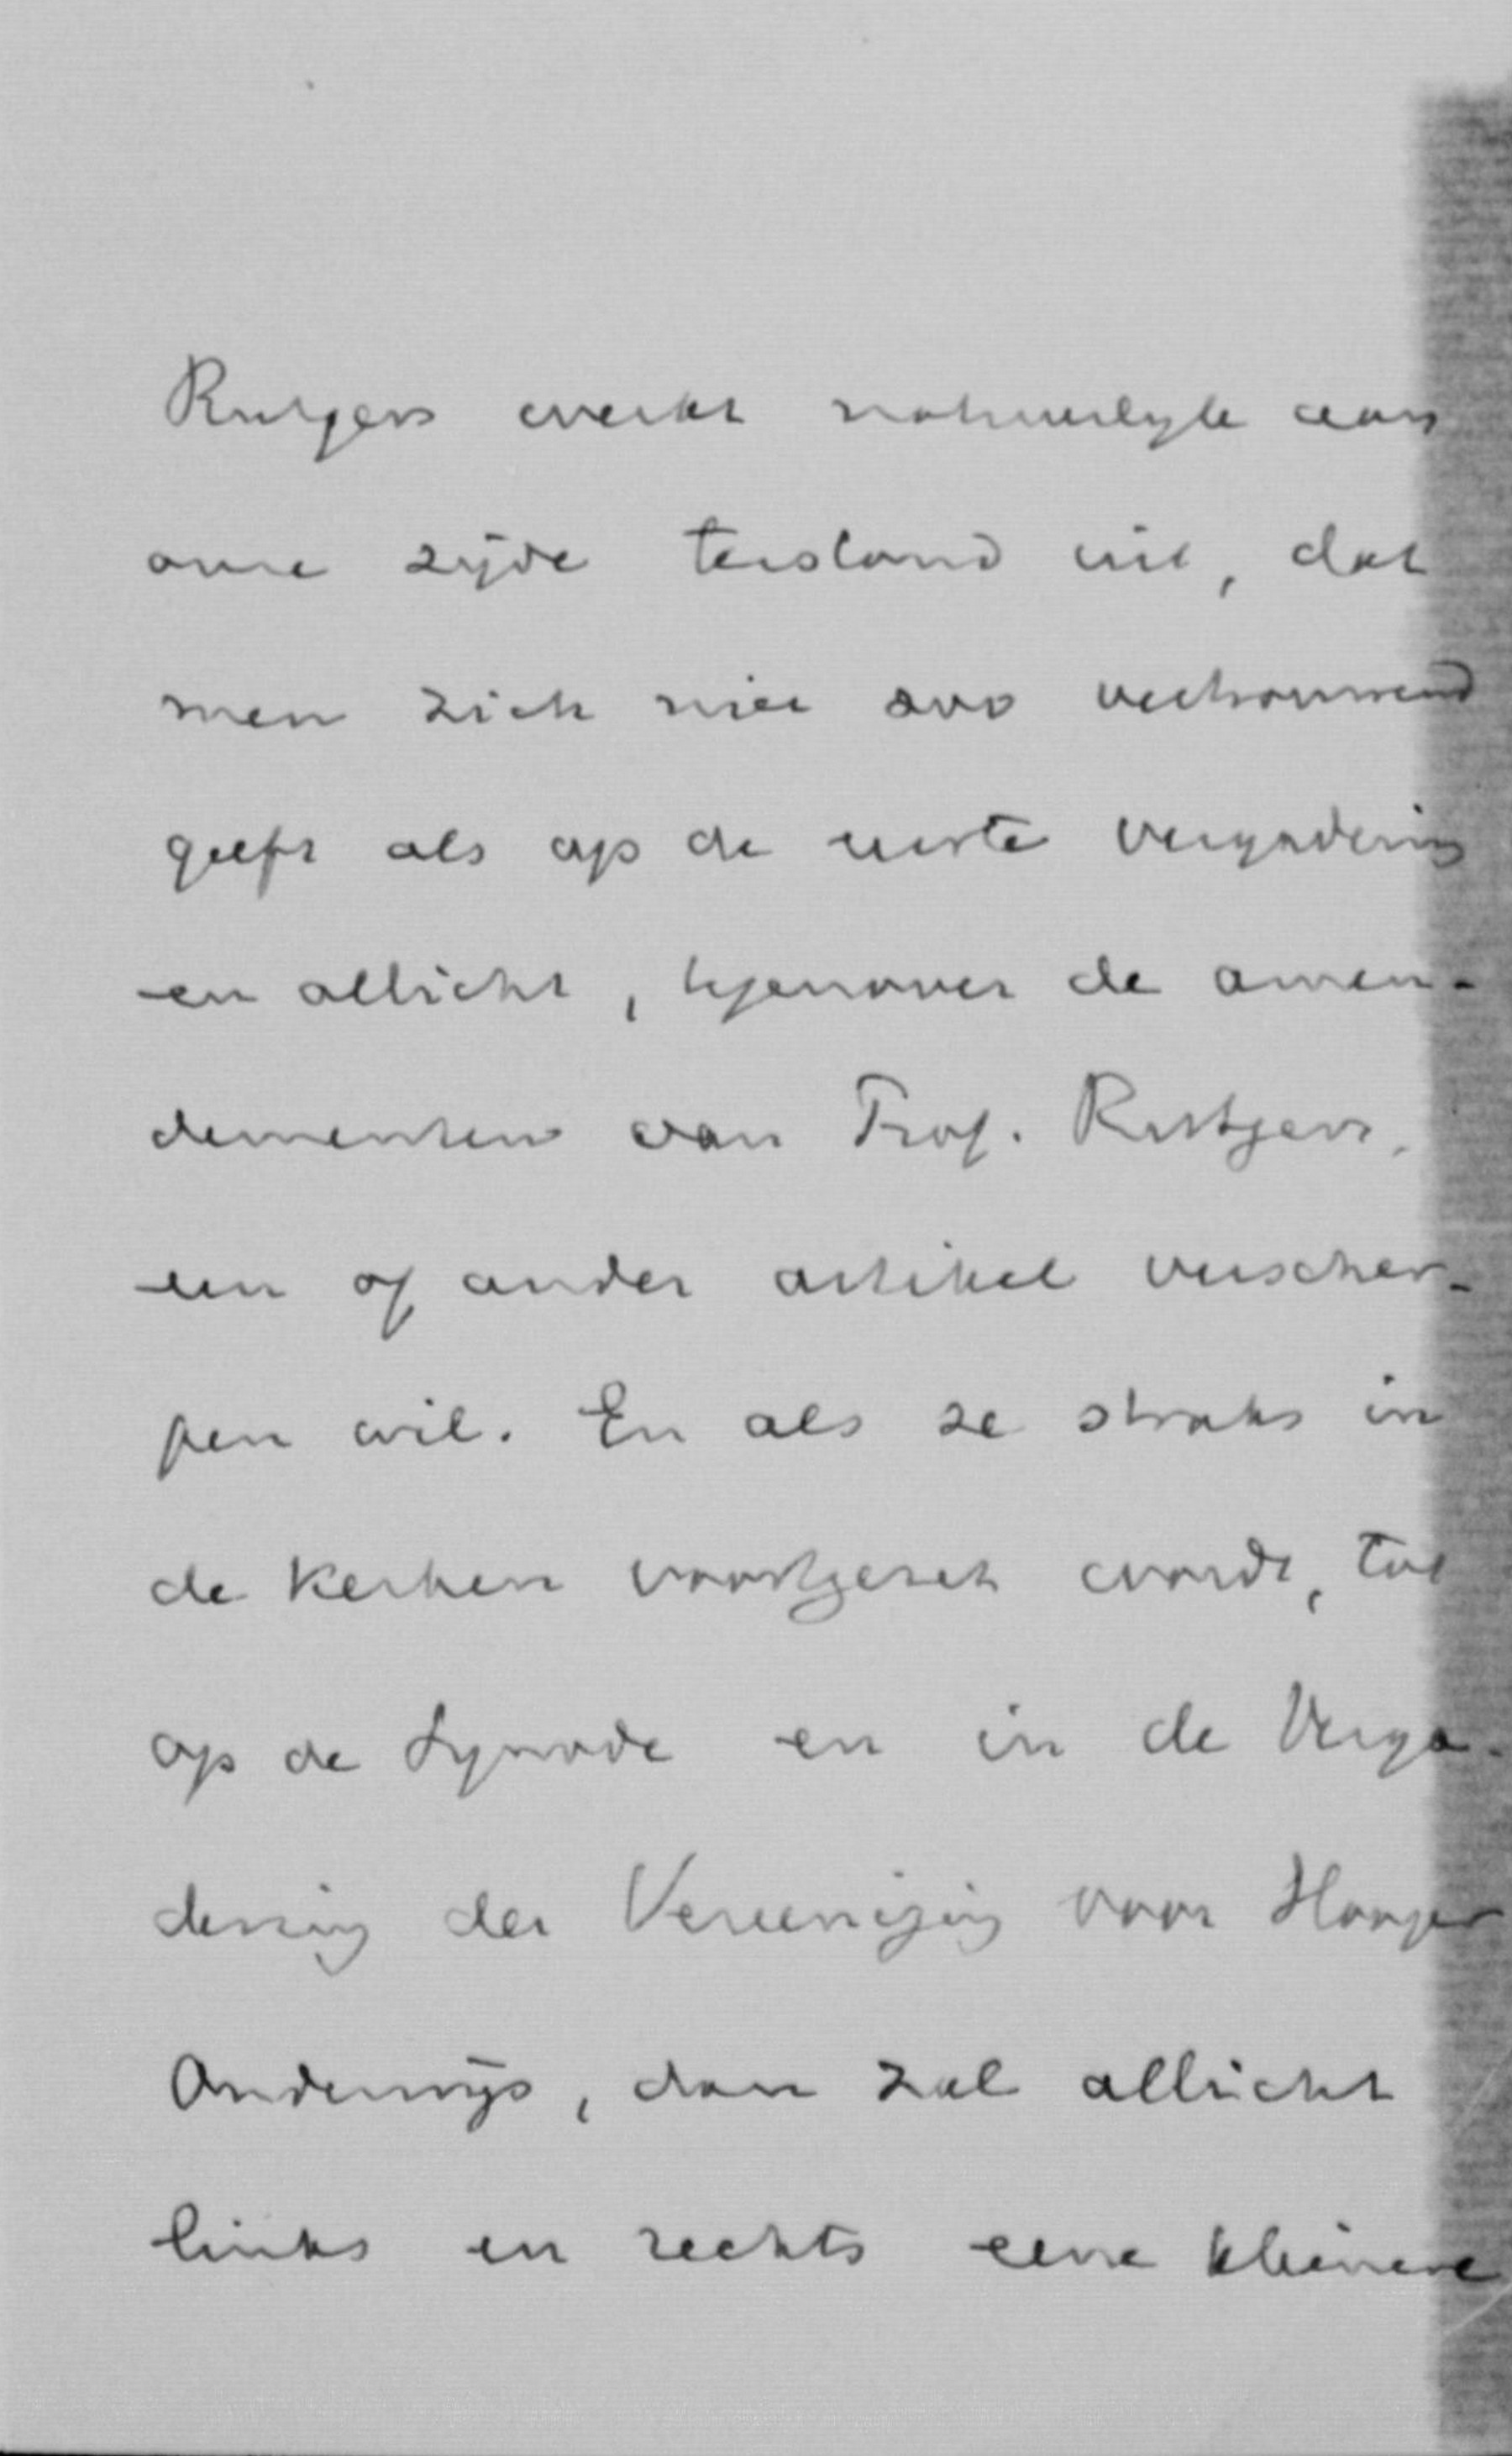 Rutgers werkt natuurlijk aan
onze zijde terstond uit, dat
men zich niet zoo vertrouwend
geeft als op de eerste vergadering
en allicht, tegenover de amen-
dementen van Prof. Rutgers,
een of ander artikel verscher-
pen wil. En als ze straks in
de kerken voortgezet wordt, tot
op de Synode en in de Verga-
dering der Vereeniging voor Hooger
Onderwijs, dan zal allicht
links en rechts eene kleinere